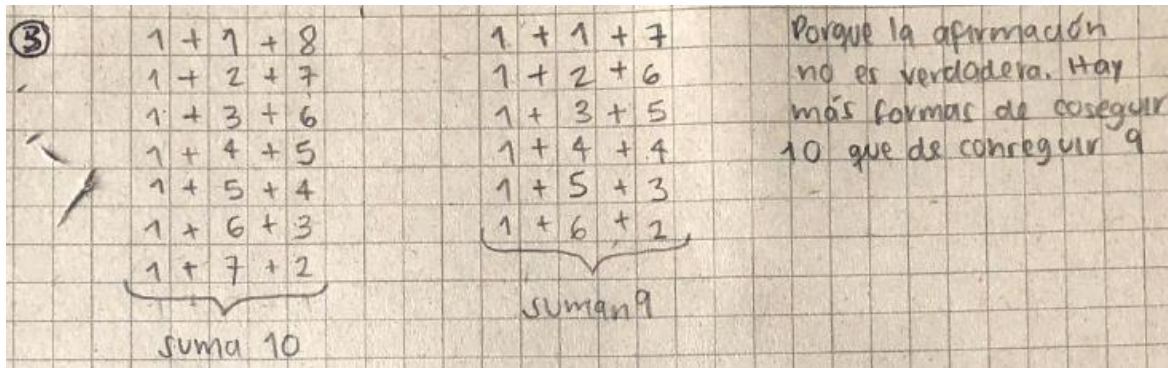 3
1 + 1 + 8
1 + 2 + 7
1 + 3 + 6
1 + 4 + 5
1 + 5 + 4
1 + 6 + 3
1 + 7 + 2
suma 10
1 + 1 + 7
1 + 2 + 6
1 + 3 + 5
1 + 4 + 4
1 + 5 + 3
1 + 6 + 2
suman 9
Porque la afirmación
no es verdadera. Hay
más formas de coseguir
10 que de conseguir 9